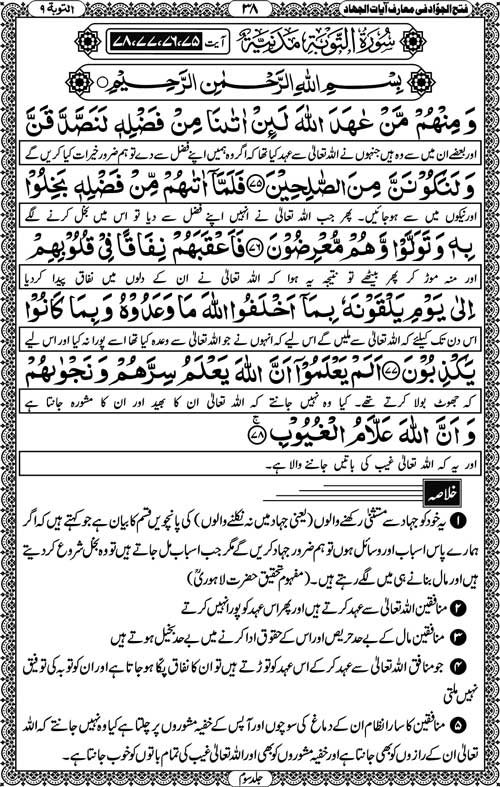 فتح الجوّاد فی معارف آیات الجهاد ۳۸ التوبة ۹
سُوْرَةُ التَّوْبَةِ مَدَنِيَّةٌ آیت ۷۵،۷۶،۷۷،۷۸
بِسْمِ اللهِ الرَّحْمٰنِ الرَّحِيْمِ
وَمِنْهُمْ مَّنْ عٰهَدَ اللهَ لَئِنْ اٰتٰىنَا مِنْ فَضْلِهٖ لَنَصَّدَّقَنَّ
اور بعضے ان میں سے وہ ہیں جنہوں نے اللہ تعالیٰ سے عہد کیا تھا کہ اگر وہ ہمیں اپنے فضل سے دے تو ہم ضرور خیرات کیا کریں گے
وَلَنَكُوْنَنَّ مِنَ الصّٰلِحِيْنَ ﴿۷۵﴾ فَلَمَّاۤ اٰتٰىهُمْ مِّنْ فَضْلِهٖ بَخِلُوْا
اور نیکوں میں سے ہو جائیں۔ پھر جب اللہ تعالیٰ نے انہیں اپنے فضل سے دیا تو اس میں بخل کرنے لگے
بِهٖ وَتَوَلَّوْا وَّهُمْ مُّعْرِضُوْنَ ﴿۷۶﴾ فَاَعْقَبَهُمْ نِفَاقًا فِيْ قُلُوْبِهِمْ
اور منہ موڑ کر پھر بیٹھے تو نتیجہ یہ ہوا کہ اللہ تعالیٰ نے ان کے دلوں میں نفاق پیدا کردیا
اِلٰى يَوْمِ يَلْقَوْنَهٗ بِمَاۤ اَخْلَفُوا اللهَ مَا وَعَدُوْهُ وَبِمَا كَانُوْا
اس دن تک کیلئے کہ اللہ تعالیٰ سے ملیں گے اس لیے کہ انہوں نے جو اللہ تعالیٰ سے وعدہ کیا تھا اسے پورا نہ کیا اور اس لیے
يَكْذِبُوْنَ ﴿۷۷﴾ اَلَمْ يَعْلَمُوْۤا اَنَّ اللهَ يَعْلَمُ سِرَّهُمْ وَنَجْوٰىهُمْ
کہ جھوٹ بولا کرتے تھے۔ کیا وہ نہیں جانتے کہ اللہ تعالیٰ ان کا بھید اور ان کا مشورہ جانتا ہے
وَاَنَّ اللهَ عَلَّامُ الْغُيُوْبِ ﴿۷۸﴾
اور یہ کہ اللہ تعالیٰ غیب کی باتیں جاننے والا ہے۔
خلاصہ
۱ یہ خود کو جہاد سے مستثنیٰ رکھنے والوں (یعنی جہاد میں نہ نکلنے والوں) کی پانچویں قسم کا بیان ہے جو کہتے ہیں کہ اگر
ہمارے پاس اسباب اور وسائل ہوں تو ہم ضرور جہاد کریں گے مگر جب اسباب مل جاتے ہیں تو وہ بخل شروع کردیتے
ہیں اور مال بنانے ہی میں لگے رہتے ہیں۔ (مفہوم تحقیق حضرت لاہوریؒ)
۲ منافقین اللہ تعالیٰ سے عہد کرتے ہیں اور پھر اس عہد کو پورا نہیں کرتے
۳ منافقین مال کے بے حد حریص اور اس کے حقوق ادا کرنے میں بے حد بخیل ہوتے ہیں
۴ جو منافق اللہ تعالیٰ سے عہد کرکے اس عہد کو توڑتے ہیں تو ان کا نفاق پکا ہو جاتا ہے اور ان کو توبہ کی توفیق
نہیں ملتی
۵ منافقین کا سارا نظام ان کے دماغ کی سوچوں اور آپس کے خفیہ مشوروں پر چلتا ہے کیا وہ نہیں جانتے کہ اللہ
تعالیٰ ان کے رازوں کو بھی جانتا ہے اور خفیہ مشوروں کو بھی اور اللہ تعالیٰ غیب کی تمام باتوں کو خوب جانتا ہے۔
جلد سوم